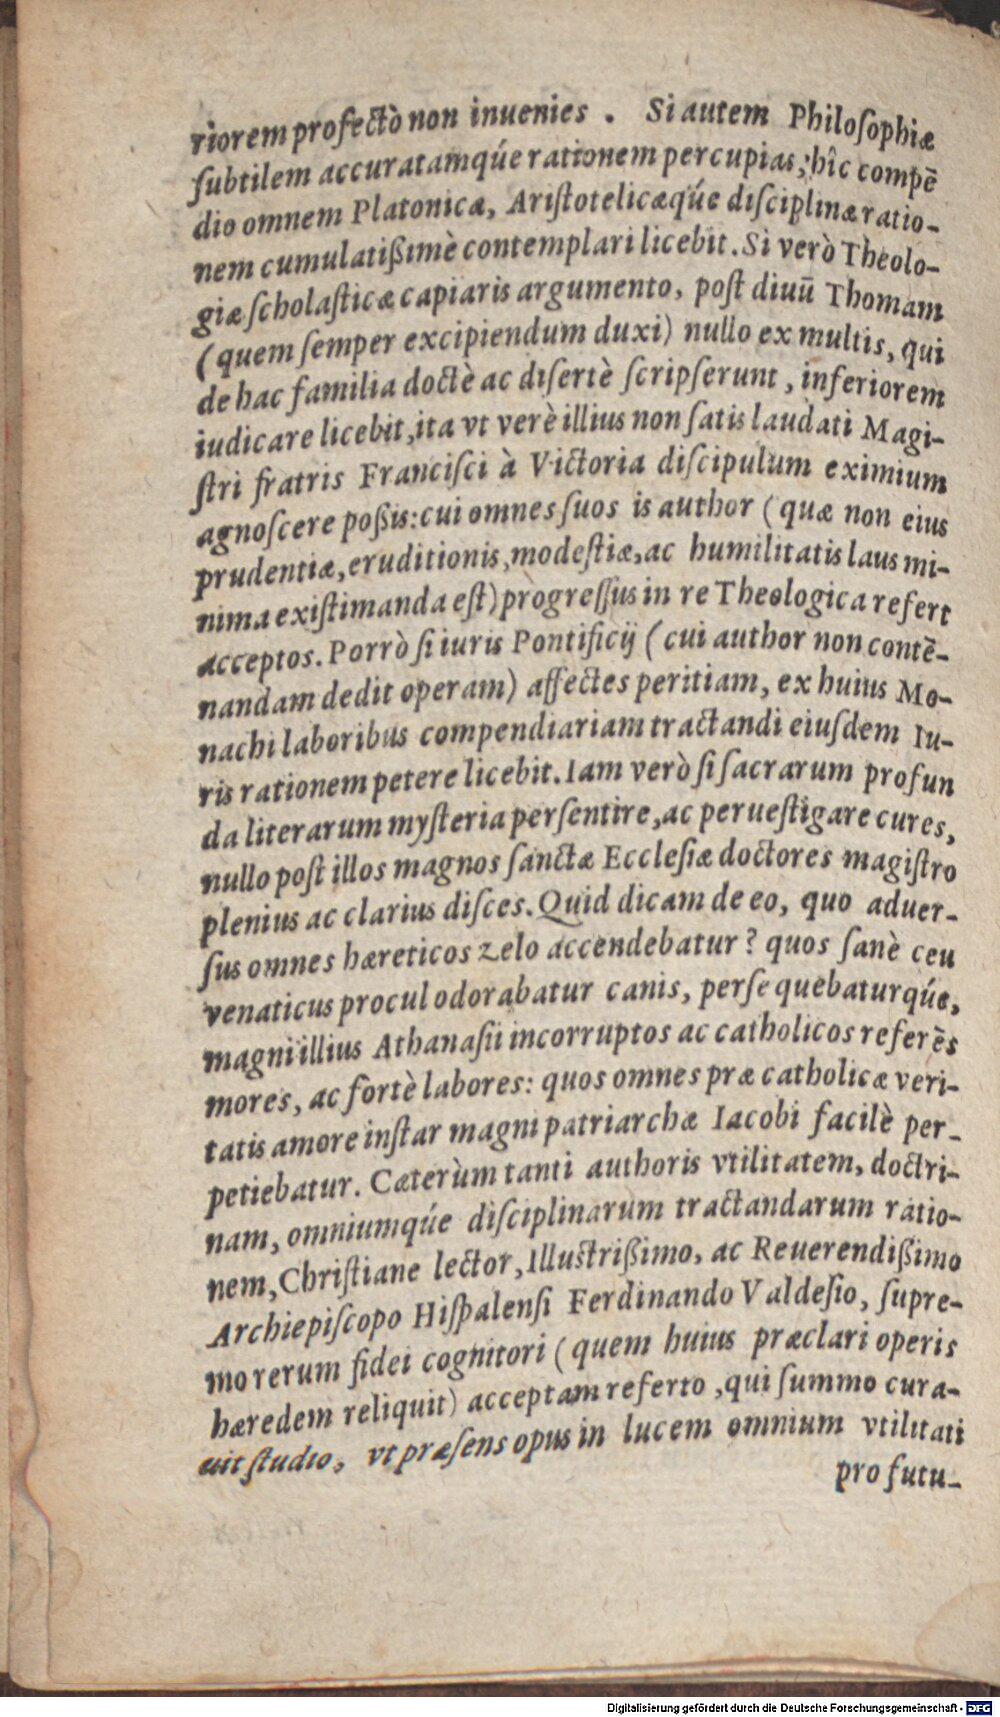 riorem profectò non inuenies . Si autem Philoſophiæ
ſubtilem accuratamqúe rationem percupias, hîc compē
dio omnem Platonicæ, Ariſtotelicæqúe diſciplinæ ratio-
nem cumulatißimè contemplari licebit. Si verò Theolo-
giæ ſcholaſticæ capiaris argumento, poſt diuū Thomam
(quem ſemper excipiendum duxi) nullo ex multis, qui
de hac familia doctè ac diſertè ſcripſerunt, inferiorem
iudicare licebit, ita vt verè illius non ſatis laudati Magi-
ſtri fratris Franciſci à Victoria diſcipulum eximium
agnoſcere poßis: cui omnes ſuos is author (quæ non eius
prudentiæ, eruditionis, modeſtiæ, ac humilitatis laus mi-
nima exiſtimanda eſt) progreſſus in re Theologica refert
acceptos. Porrò ſi iuris Pontificij (cui author non contē-
nandam dedit operam) affectes peritiam, ex huius Mo-
nachi laboribus compendiariam tractandi eiuſdem Iu-
ris rationem petere licebit. Iam verò ſi ſacrarum profun
da literarum myſteria perſentire, ac perueſtigare cures,
nullo poſt illos magnos ſanctæ Eccleſiæ doctores magiſtro
plenius ac clarius diſces. Quid dicam de eo, quo aduer-
ſus omnes hæreticos zelo accendebatur? quos ſanè ceu
venaticus procul odorabatur canis, perſequebaturqúe,
magni illius Athanaſii incorruptos ac catholicos referēs
mores, ac fortè labores: quos omnes præ catholicæ veri-
tatis amore inſtar magni patriarchæ Iacobi facilè per-
petiebatur. Cæterùm tanti authoris vtilitatem, doctri-
nam, omniumqúe diſciplinarum tractandarum ratio-
nem, Chriſtiane lector, Illuſtrißimo, ac Reuerendißimo
Archiepiſcopo Hiſpalenſi Ferdinando Valdeſio, ſupre-
mo rerum fidei cognitori (quem huius præclari operis
hæredem reliquit) acceptam referto, qui ſummo cura-
uit ſtudio, vt præſens opus in lucem omnium vtilitati
profutu-
Digitalisierung gefördert durch die Deutsche Forschungsgemeinschaft - DFG